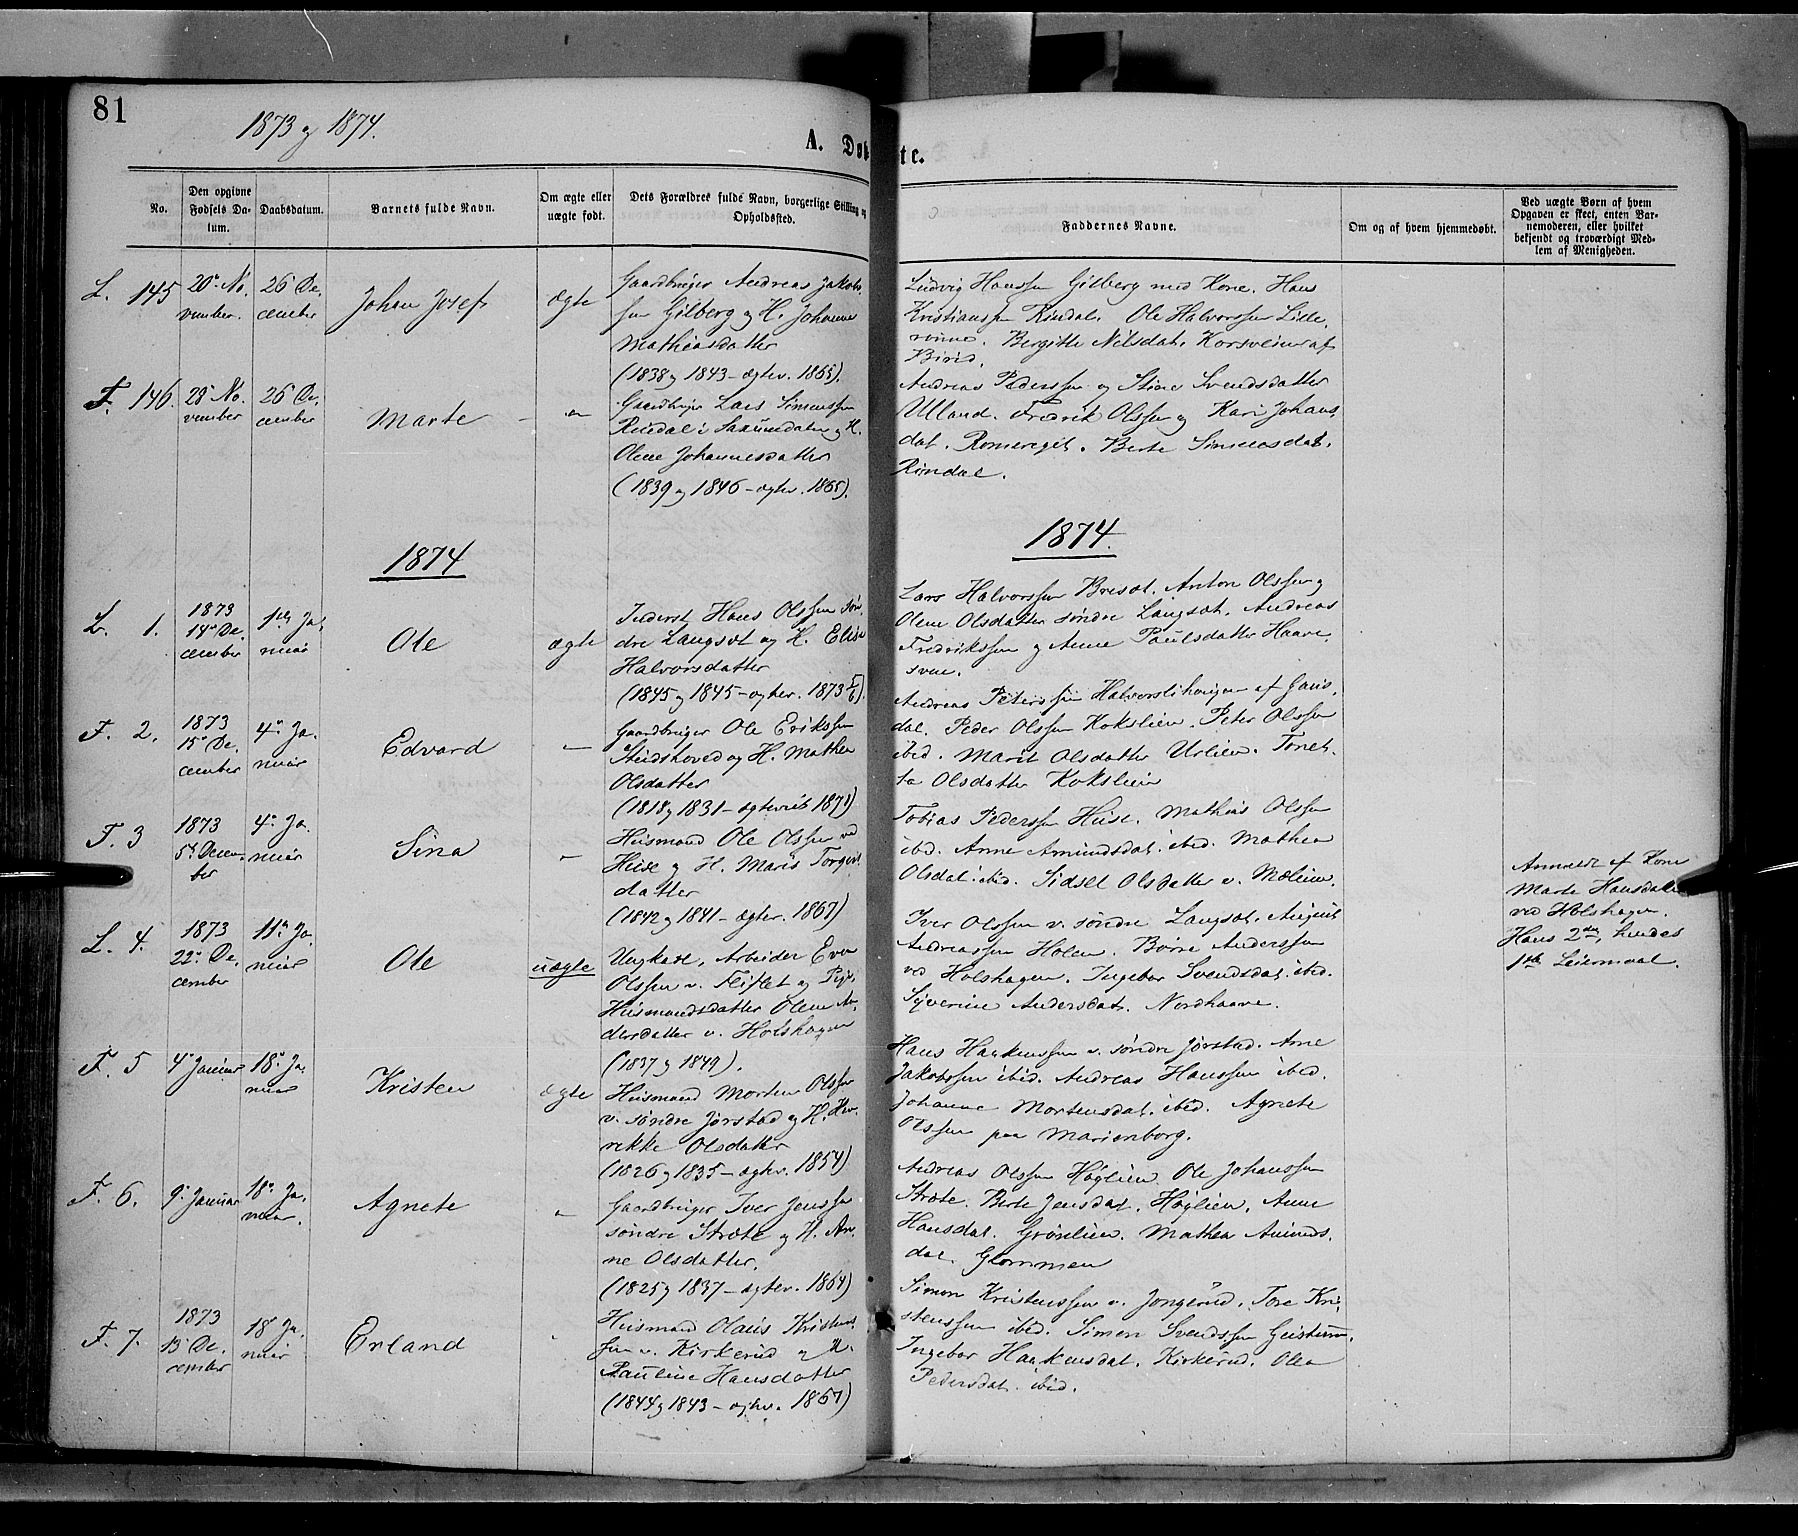 81
1873 og 1874.
A. Døbte.
No.
Den opgivne Fødsels Datum.
Daabsdatum.
Barnets fulde Navn.
Om ægte eller uægte født.
Dets Forældres fulde Navn, borgerlige Stilling og Opholdssted.
Faddernes Navne.
Om og af hvem hjemmedøbt.
Ved uægte Børn af hvem
Opgaven er skeet, enten Bar-
nemoderen, eller hvilket
bekjendt og troværdigt Med-
lem af Menigheden.
L. 145
20de No-
vember.
26 De-
cember
Johan Josef
ægte
Gaardbruger Andreas Jakobs-
sen Gilberg og H. Johanne
Mathiasdatter
(1838 og 1843 – ægtev. 1865).
Ludvig Hanssen Gilberg med Kone. Hans
Kristianssen Rindal. Ole Halvorssen Lille-
rinne. Bergitte Nilsdat. Korsveien af
Birid.
F. 146.
28 No-
vember
26 De-
cember
Marte
Gaardbruger Lars Simenssen
Rindal i Saxumdalen og H.
Olene Johannesdatter
(1839 og 1846 – ægtev. 1865).
Andreas Pederssen og Stine Svendsdatter
Ulland. Fredrik Olssen og Kari Johans-
dat. Romereget. Berte Simensdat.
Rindal.
1874
1874.
L. 1.
1873
14de De-
cember
1ste Ja-
nuar
Ole
ægte
Inderst Hans Olssen søn-
dre Langsæt og H. Elise
Halvorsdatter
(1845 og 1845 – ægtev. 1873 5/6).
Lars Halvorssen Bresæt. Anton Olssen og
Olene Olsdatter søndre Langsæt. Andreas
Fredrikssen og Anne Paulsdatter Haave-
sven.
F. 2.
1873
15de De-
cember
4de Ja-
nuar
Edvard
–
Gaardbruger Ole Erikssen
Stidshoved og H. Mathea
Olsdatter
(1818 og 1831 – ægteviet 1871)
Andreas Peterssen Halvorslihaugen af Gaus-
dal. Peder Olssen Kokslien. Peter Olssen
ibid. Marit Olsdatter Urlien. Tonet-
ta Olsdatter Kokslien
F. 3
1873
5te Decem-
ber
4de Ja-
nuar
Sina
–
Husmand Ole Olssen ved
Huse og H. Maris Torgers-
datter
(1842 og 1841 – ægtev. 1867)
Tobias Pederssen Huse. Mathias Olssen
ibid. Anne Amundsdat. ibid. Mathea
Olsdat. ibid. Sidsel Olsdatter v. Mælien.
L. 4.
1873
22de De-
cember
11te Ja-
nuar
Ole
uægte
Ungkarl, Arbeider Even
Olssen v. Fliflet og Pige,
Husmandsdatter Olene An-
dersdatter v. Holshagen
(1837 og 1849).
Iver Olssen v. søndre Langsæt. August
Andreassen Holen. Børre Anderssen
ved Holshagen. Ingebor Svendsdat. ibid.
Syverine Andersdat. Nordhaave.
Anmeldt af Kone
Marte Hansdatter
ved Holshagen.
Hans 2det, hendes
1ste Leiermaal.
F. 5
4de Januar
18de Ja-
nuar
Kristen
ægte
Husmand Morten Olssen
v. søndre Jørstad og H. Hen-
rikke Olsdatter
(1826 og 1835 – ægtev. 1854)
Hans Haakenssen v. søndre Jørstad. Arne
Jakobssen ibid. Andreas Hanssen ibid.
Johanne Mortensdat. ibid. Agnete
Olssen paa Marienborg.
F. 6.
9de Januar
18de Ja-
nuar.
Agnete
–
Gaardbruger Iver Jenssen
søndre Stræte og H. An-
ne Olsdatter.
(1825 og 1837 – ægtev. 1864)
Andreas Olssen Høglien. Ole Johanssen
Stræte. Berte Jensdat. Høglien. Anne
Hansdat. Grønlien. Mathea Amunds-
dat. Glommen
F. 7.
1873
13 De-
cember
18 Ja-
nuar
Erland
Husmand Olaus Kristens-
sen v. Kirkerud og H.
Pauline Hansdatter
(1844 og 1843 – ægtev. 1867)
Simen Kristenssen v. Jongerud. Tore Kri-
stenssen ibid. Simen Svendssen
Ingebor Haakensdat. Kirkerud. Olea
Pedersdat. ibid.